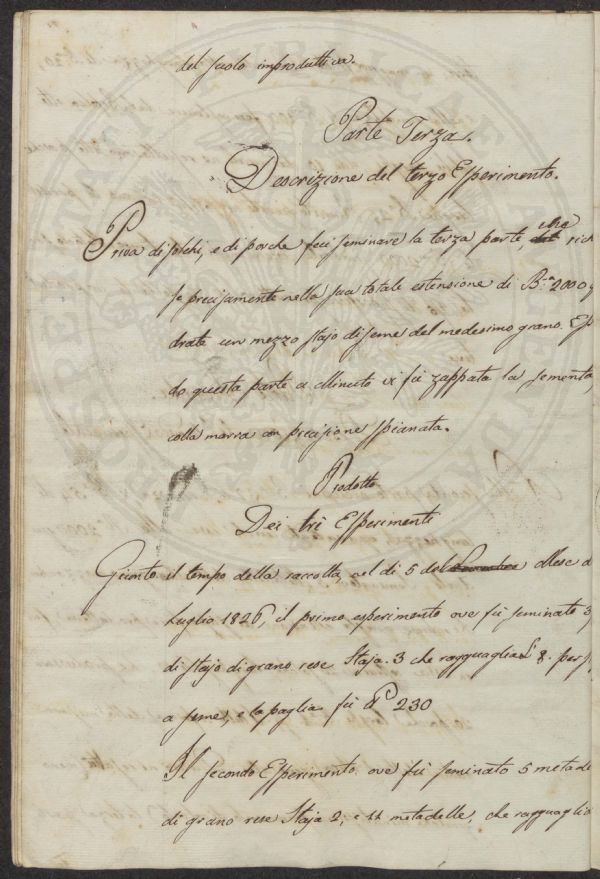 del suolo improduttiva.
Parte Terza.
Descrizione del terzo Esperimento.
Priva di solchi, e di porche feci seminare la terza parte, che rich
se precisamente nella sua totale estensione di B.a 2000 q
drate un mezzo stajo di seme del medesimo grano. Ess
do questa parte a minuto vi fu zappata la sementa,
colla marra con precisione spianata.
Prodotto
Dei tre Esperimenti
Gionto il tempo della raccolta, nel di 5 del Mese d
Luglio 1826, il primo esperimento ove fù seminato 3
di stajo di grano rese Staja. 3 che ragguaglia 8. per
a seme, e la paglia fù 230
Il secondo Esperimento, ove fù seminato 5 metade
di grano rese Staja 2, e 11 metadelle, che ragguaglio